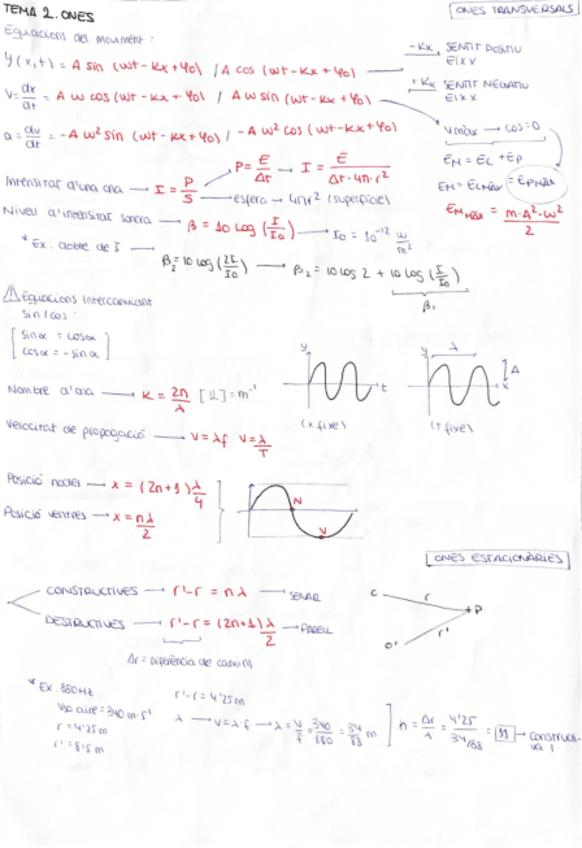 TEMA 2. ONES
ONES TRANSVERSALS
Equacions del moviment:
y(x,t) = A sin (ωt - kx + φ0) / A cos (ωt - kx + φ0)
- kx SENTIT POSITIU EIX X
+ kx SENTIT NEGATIU EIX X
v = dx/dt = A ω cos (ωt - kx + φ0) / A ω sin (ωt - kx + φ0)
vmàx → cos = 0
a = dv/dt = -A ω² sin (ωt - kx + φ0) / -A ω² cos (ωt - kx + φ0)
EM = EC + EP
EM = ECMàx = EPMàx
EM Màx = m·A²·ω² / 2
P = E/Δt → I = E / Δt·4π·r²
Intensitat d'una ona → I = P/S
esfera → 4πr² (superfície)
Nivell d'intensitat sonora → β = 10 log (I/I0) → I0 = 10⁻¹² w/m²
* Ex. doble de I → β2 = 10 log (2I/I0) → β2 = 10 log 2 + 10 log (I/I0)
β1
⚠ Equacions intercanviant
sin / cos:
sin α = cos α
cos α = - sin α
y
t
(x fixe)
y
λ
A
x
(t fixe)
Nombre d'ona → K = 2π/λ [K] = m⁻¹
Velocitat de propagació → v = λf v = λ/T
Posició nodes → x = (2n+1) λ/4
Posició ventres → x = nλ/2
N
V
ONES ESTACIONÀRIES
CONSTRUCTIVES → r'-r = nλ → SENAR
DESTRUCTIVES → r'-r = (2n+1) λ/2 → PARELL
Δr = diferència de camins
r
P
O'
r'
* Ex. 880 Hz
Vso aire = 340 m·s⁻¹
r = 4'25 m
r' = 8'5 m
r'-r = 4'25 m
λ → v = λ·f → λ = v/f = 340/880 = 34/88 m
n = Δr/λ = 4'25 / 34/88 = 11 → constructi-
va!